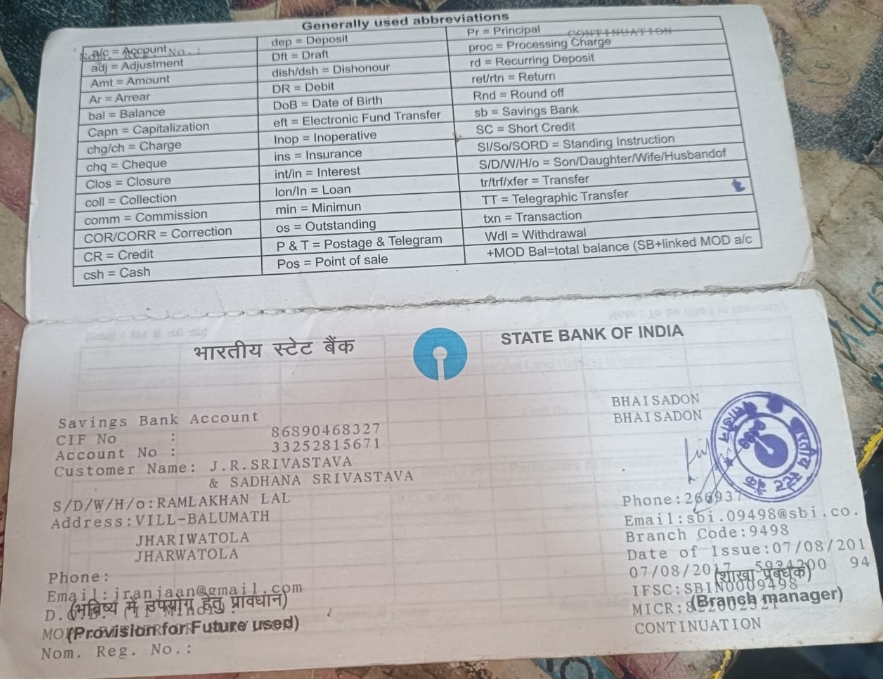 Generally used abbreviations
a/c = Account
adj = Adjustment
Amt = Amount
Ar = Arrear
bal = Balance
Capn = Capitalization
chg/ch = Charge
chq = Cheque
Clos = Closure
coll = Collection
comm = Commission
COR/CORR = Correction
CR = Credit
csh = Cash
dep = Deposit
Dft = Draft
dish/dsh = Dishonour
DR = Debit
DoB = Date of Birth
eft = Electronic Fund Transfer
Inop = Inoperative
ins = Insurance
int/in = Interest
lon/ln = Loan
min = Minimun
os = Outstanding
P & T = Postage & Telegram
Pos = Point of sale
Pr = Principal
CONTINUATION
proc = Processing Charge
rd = Recurring Deposit
ret/rtn = Return
Rnd = Round off
sb = Savings Bank
SC = Short Credit
SI/So/SORD = Standing Instruction
S/D/W/H/o = Son/Daughter/Wife/Husbandof
tr/trf/xfer = Transfer
TT = Telegraphic Transfer
txn = Transaction
Wdl = Withdrawal
+MOD Bal=total balance (SB+linked MOD a/c
भारतीय स्टेट बैंक
STATE BANK OF INDIA
Savings Bank Account
CIF No : 86890468327
Account No : 33252815671
Customer Name: J.R.SRIVASTAVA
& SADHANA SRIVASTAVA
S/D/W/H/o:RAMLAKHAN LAL
Address:VILL-BALUMATH
JHARIWATOLA
JHARWATOLA
Phone:
Email:jranjaan@gmail.com
(भविष्य में उपयोग हेतु प्रावधान)
(Provision for Future used)
Nom. Reg. No.:
BHAISADON
BHAISADON
Phone:266937
Email:sbi.09498@sbi.co.
Branch Code:9498
Date of Issue:07/08/201
07/08/2017
94
(शाखा प्रबंधक)
IFSC:SBIN0009498
(Branch manager)
MICR:
CONTINUATION